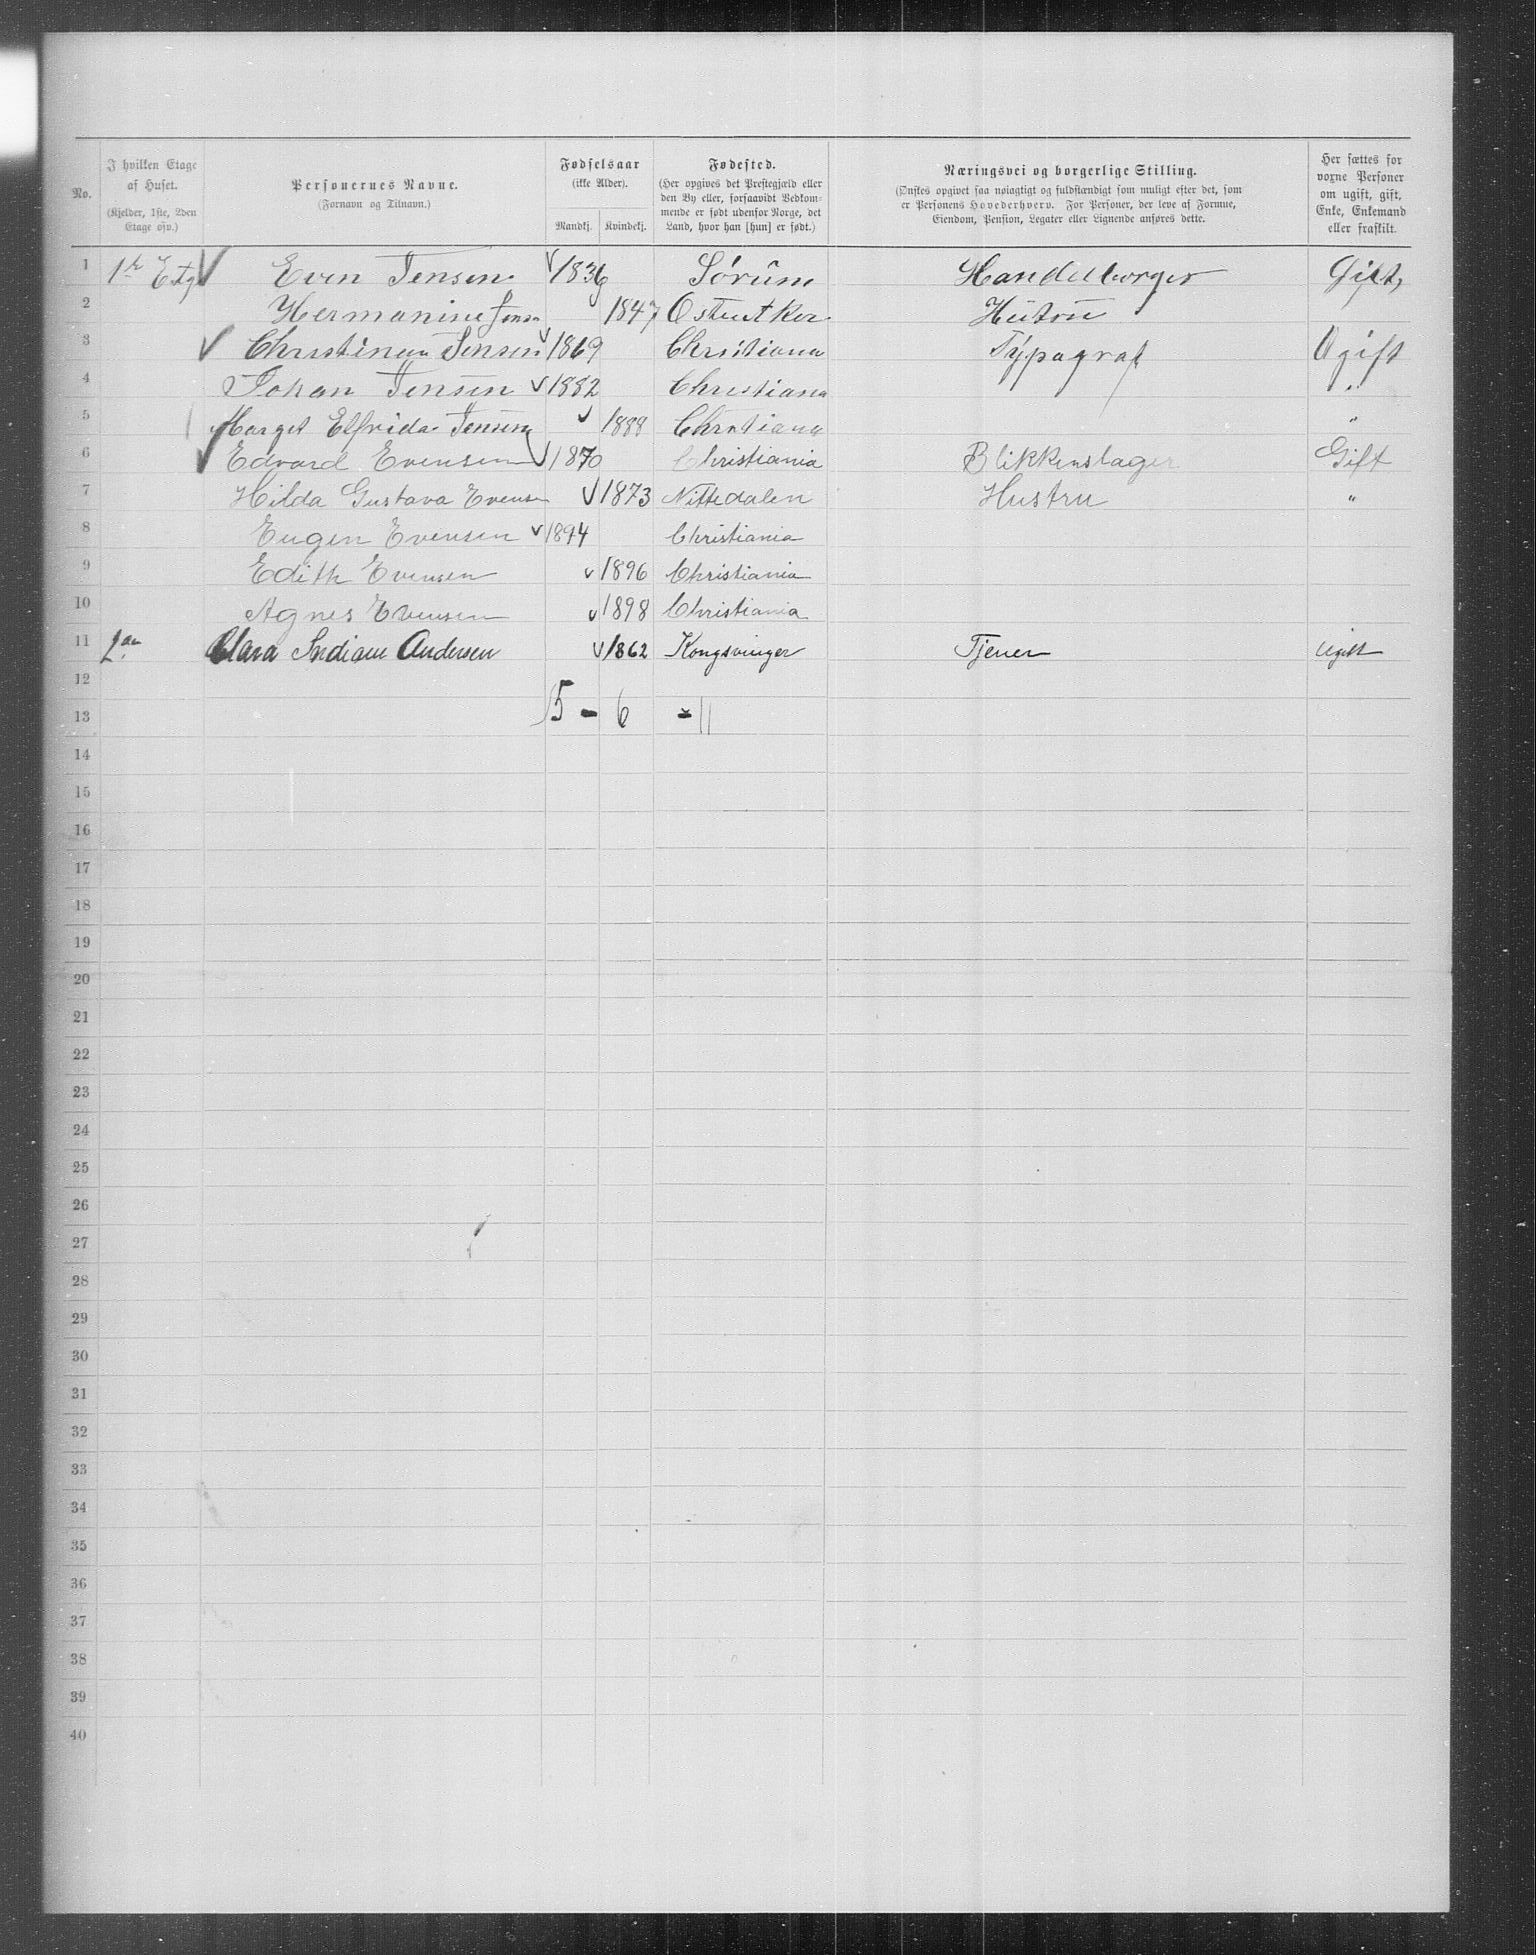 No.
I hvilken Etage af Huset.
(Kjelder, 1ste, 2den Etage osv.)
Personernes Navne.
(Fornavn og Tilnavn.)
Fødselsaar
(ikke Alder).
Mandkj. Kvindekj.
Fødested.
(Her opgives det Prestegjæld eller
den By eller, forsaavidt Vedkom-
mende er født udenfor Norge, det
Land, hvor han [hun] er født.)
Næringsvei og borgerlige Stilling.
(Ønskes opgivet saa nøiagtigt og fuldstændigt som muligt efter det, som
er Personens Hovederhverv. For Personer, der leve af Formue,
Eiendom, Pension, Legater eller Lignende anføres dette.
Her sættes for
voxne Personer
om ugift, gift,
Enke, Enkemand
eller fraskilt.
1 1ste Etg Even Jensen 1836 Sørum Handelborger Gift,
2 Hermanine Jensen 1847 Hustru
3 Christinan Jensen 1869 Christiana Typagraf Ugift
4 Johan Jensen 1882 Christiana "
5 Marget Elfrida Jensen 1888 Christiana "
6 Edvard Evensen 1870 Christiania Blikkenslager Gift
7 Hilda Gustava Evensen 1873 Nittedalen Hustru "
8 Eugen Evensen 1894 Christiania
9 Edith Evensen 1896 Christiania
10 Agnes Evensen 1898 Christiania
11 Clara Andersen 1862 Kongsvinger Tjener Ugift
12
13 5 - 6 - 11
14
15
16
17
18
19
20
21
22
23
24
25
26
27
28
29
30
31
32
33
34
35
36
37
38
39
40